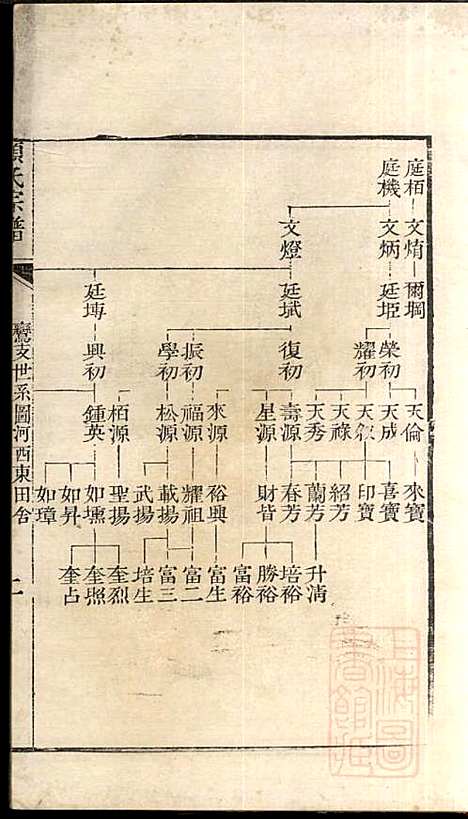 庭栢 庭機
文焴 文炳 文燈
爾堈 廷㙛 廷斌 廷塼
榮初 耀初 復初 振初 學初 興初
天倫 天成 天敘 天祿 天秀 壽源 星源 來源 福源 松源 栢源 鍾英
來寶 喜寶 印寶 紹芳 蘭芳 春芳 財皆 裕興 耀祖 載揚 武揚 聖揚 如壎 如昇 如璋
升淸 培裕 勝裕 富裕 富生 富二 富三 培生 奎烈 奎照 奎占
氏宗譜
鸞支世系圖河西東田舍
二
上海圖書館藏